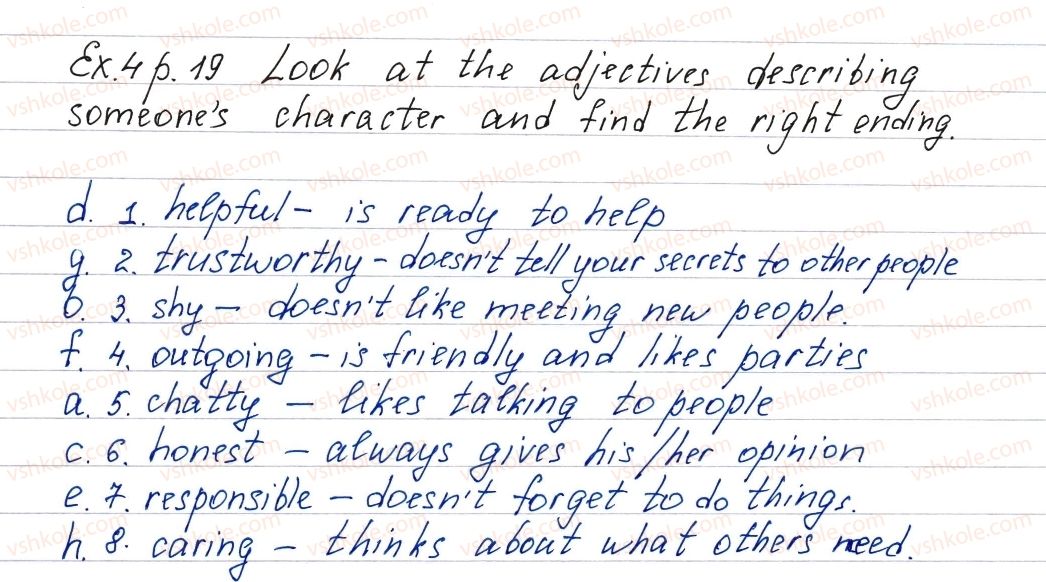 Ex.4 p.19 Look at the adjectives describing
someone's character and find the right ending.
d. 1. helpful – is ready to help
g. 2. trustworthy – doesn't tell your secrets to other people
b. 3. shy – doesn't like meeting new people.
f. 4. outgoing – is friendly and likes parties
a. 5. chatty – likes talking to people
c. 6. honest – always gives his/her opinion
e. 7. responsible – doesn't forget to do things.
h. 8. caring – thinks about what others need.